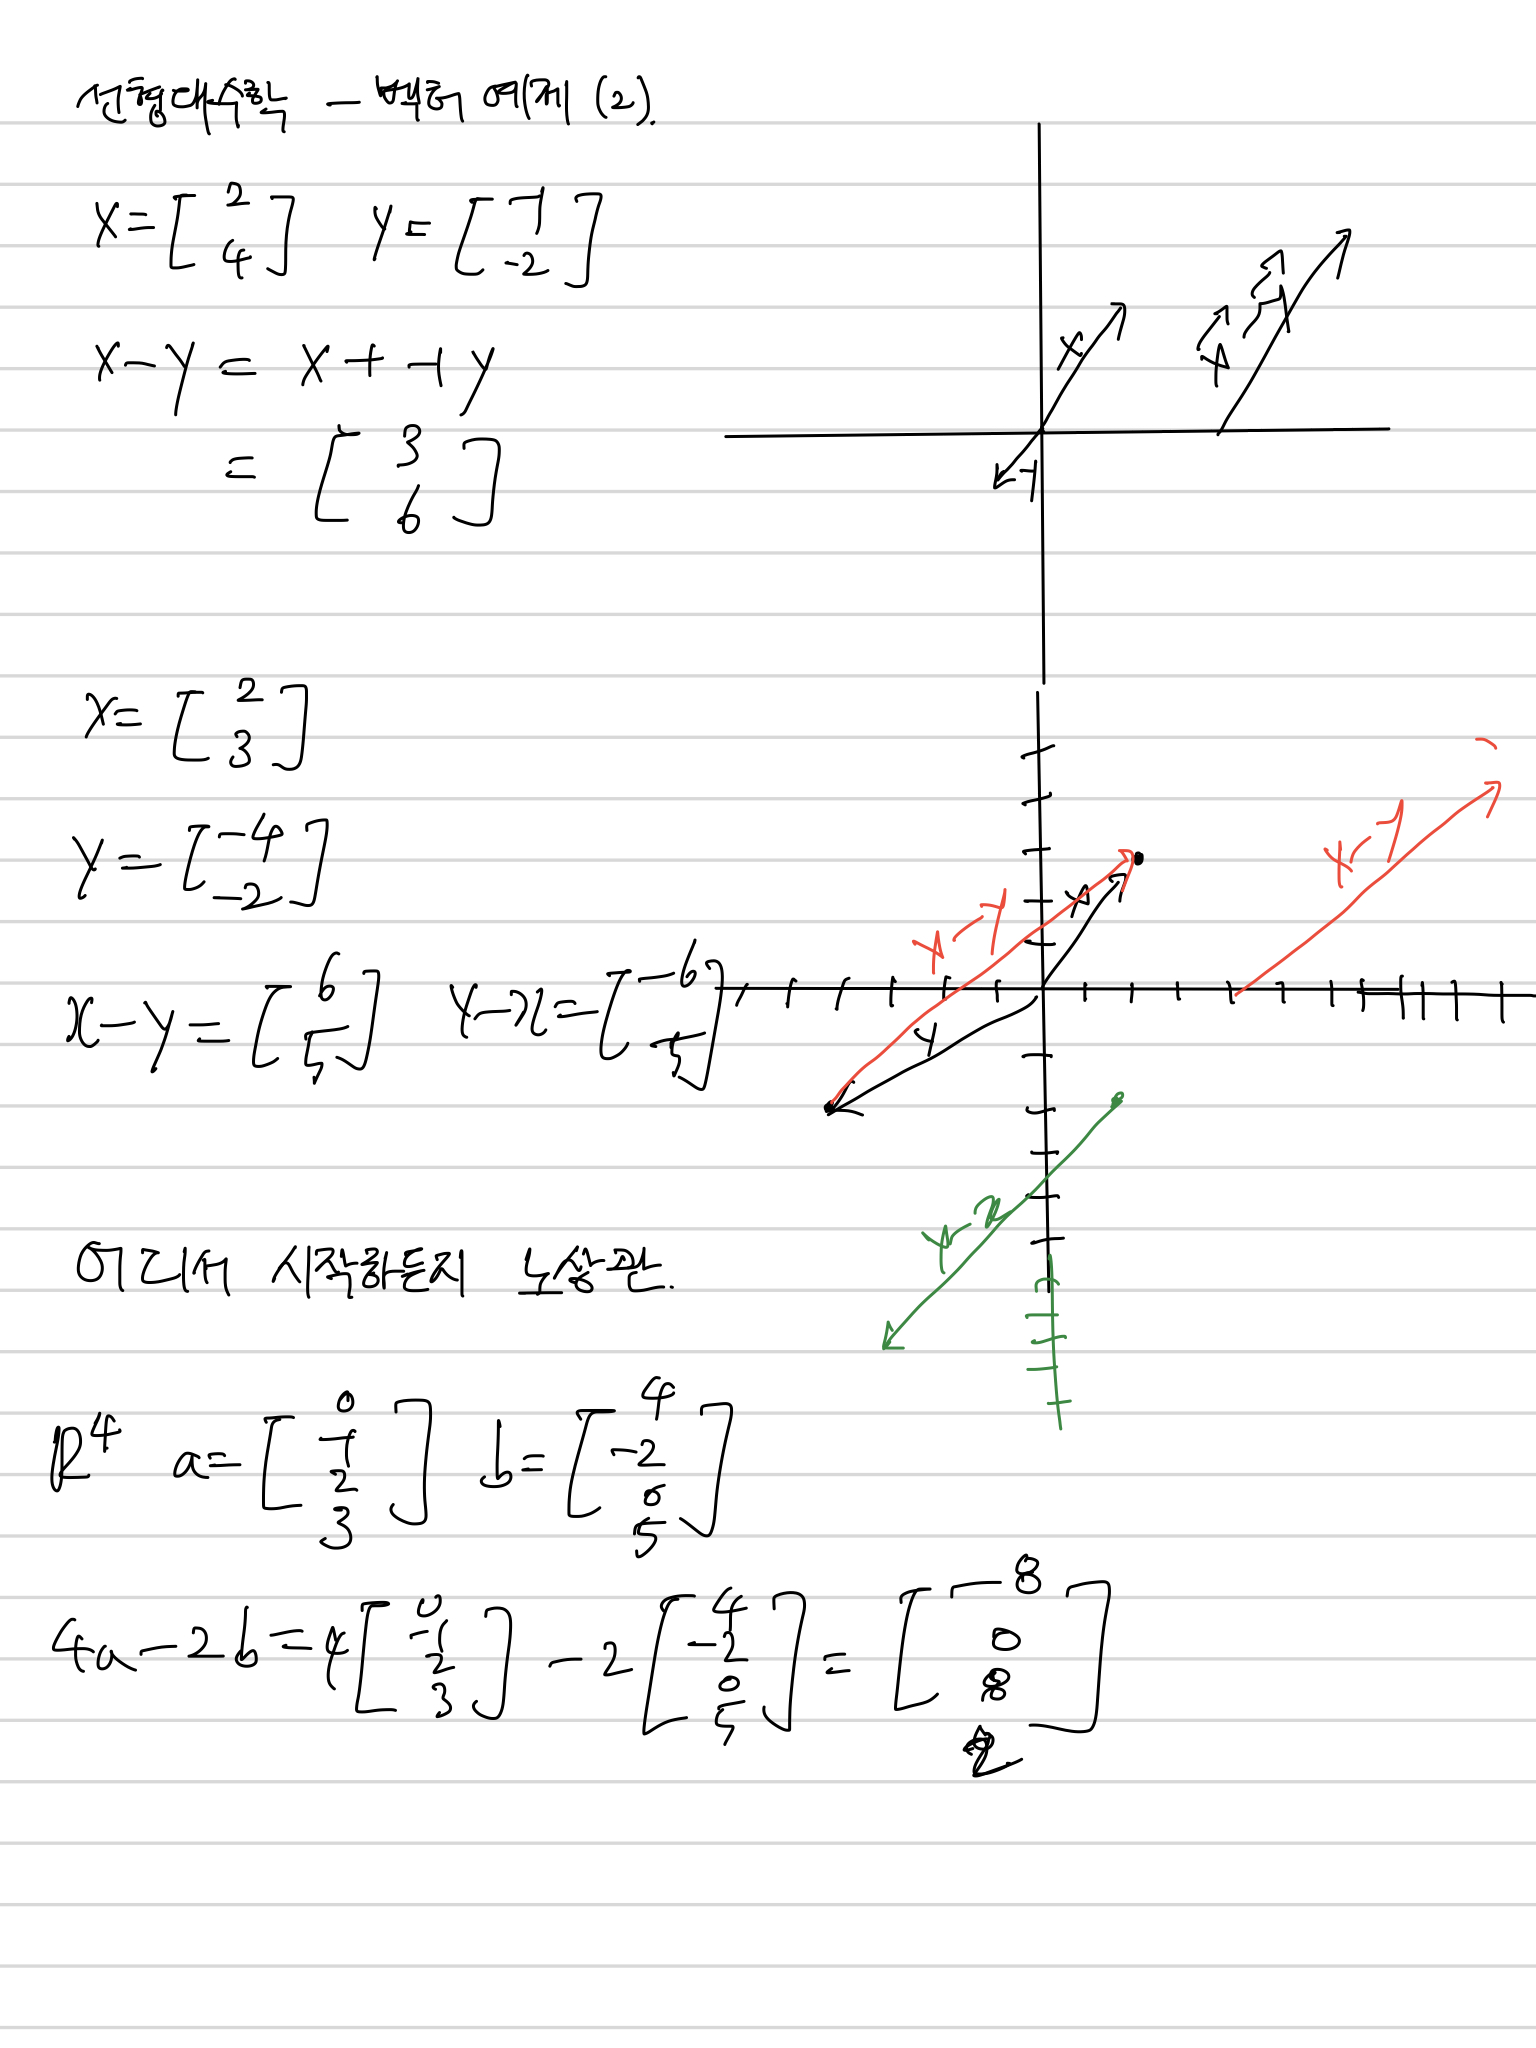 선형대수학 - 벡터 예제 (2).
x = [ 2 4 ] y = [ -1 -2 ]
x - y = x + -1y
= [ 3 6 ]
x
y
x - y
x = [ 2 3 ]
y = [ -4 -2 ]
x - y = [ 6 5 ] y - x = [ -6 -5 ]
x
y
x - y
x - y
y - x
어디서 시작하든지 노상관.
R⁴ a = [ 0 -1 2 3 ] b = [ 4 -2 0 5 ]
4a - 2b = 4[ 0 -1 2 3 ] - 2[ 4 -2 0 5 ] = [ -8 0 8 2 ]